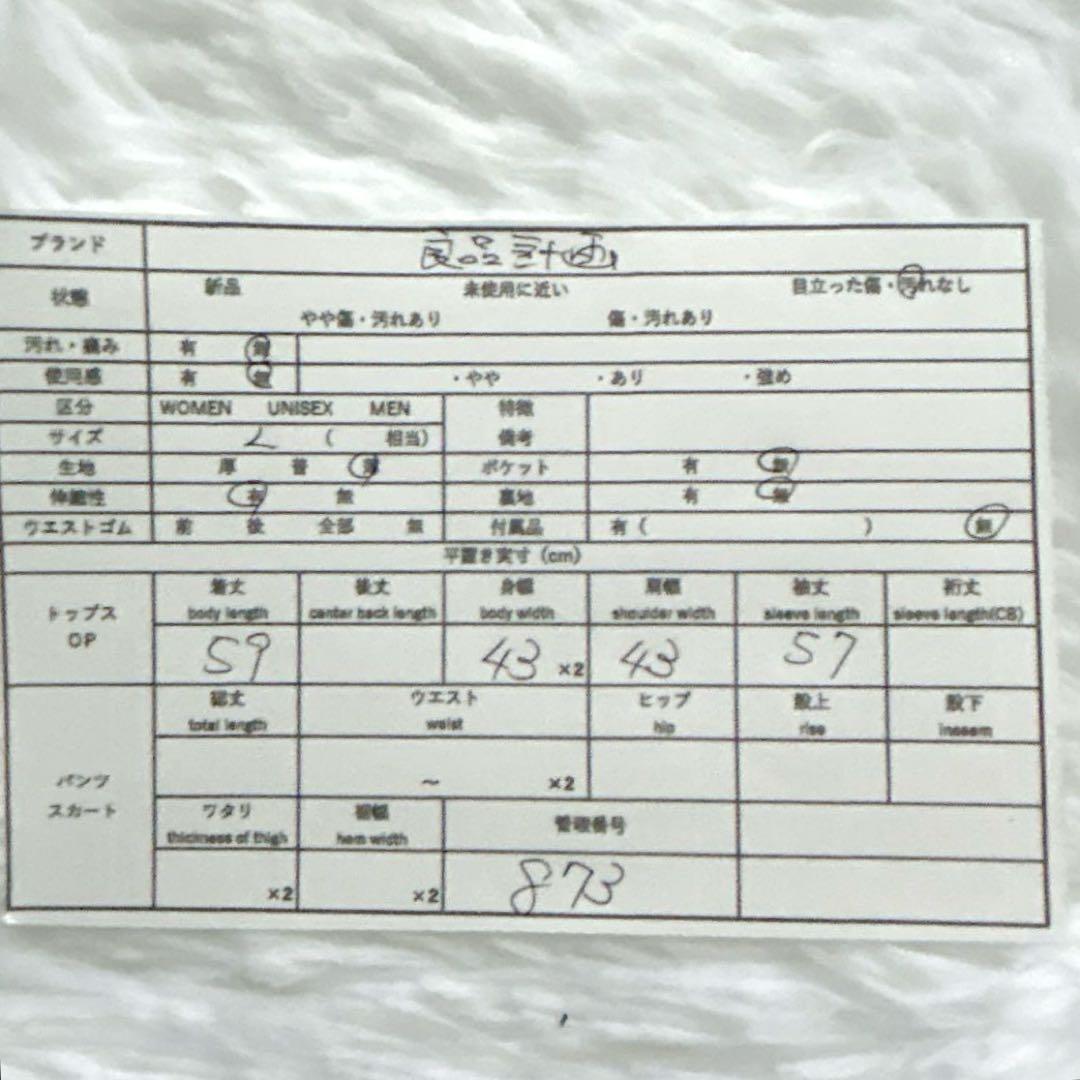 ブランド 良品計画
状態 新品 未使用に近い 目立った傷・汚れなし
やや傷・汚れあり 傷・汚れあり
汚れ・痛み 有 無
使用感 有 無 ・やや ・あり ・強め
区分 WOMEN UNISEX MEN 特徴
サイズ L ( 相当) 備考
生地 厚 普 薄 ポケット 有 無
伸縮性 有 無 裏地 有 無
ウエストゴム 前 後 全部 無 付属品 有 ( ) 無
平置き実寸 (cm)
トップス OP
着丈 後丈 身幅 肩幅 袖丈 裄丈
body length canter back length body width shoulder width sleeve length sleeve length(CB)
59 43 ×2 43 57
パンツ スカート
総丈 ウエスト ヒップ 股上 股下
total length waist hip rise inseem
~ ×2
ワタリ 裾幅 管理番号
thicimess of thigh hem width
×2 ×2 873